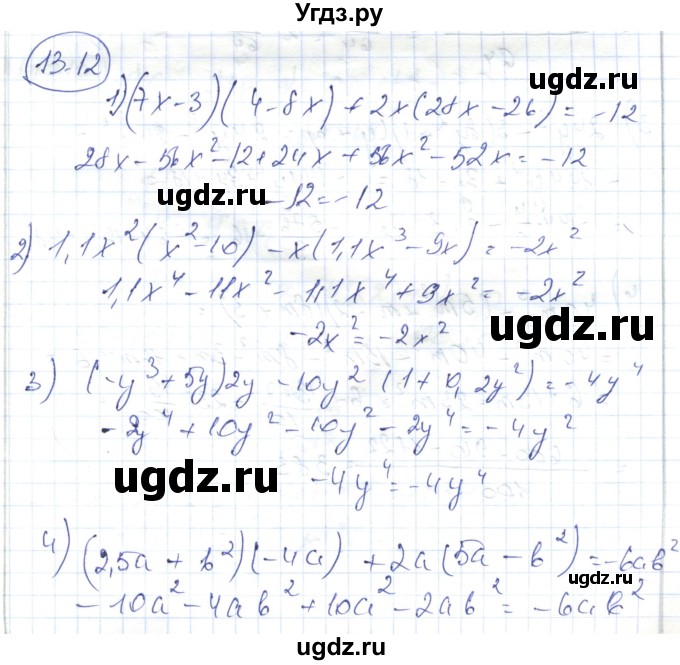 Угдз.ру
13.12
1) (7x-3)(4-8x)+2x(28x-26)=-12
28x-56x²-12+24x+56x²-52x=-12
ugdz.ru
ugdz.ru
-12=-12
2) 1,1x²(x²-10)-x(1,1x³-9x)=-2x²
1,1x⁴-11x²-1,1x⁴+9x²=-2x²
ugdz.ru
-2x²=-2x²
3) (-y³+5y)2y-10y²(1+0,2y²)=-4y⁴
-2y⁴+10y²-10y²-2y⁴=-4y²
ugdz.ru
-4y⁴=-4y⁴
4) (2,5a+b²)(-4a)+2a(5a-b²)=-6ab²
ugdz.ru
-10a²-4ab²+10a²-2ab²=-6ab²
ugdz.ru